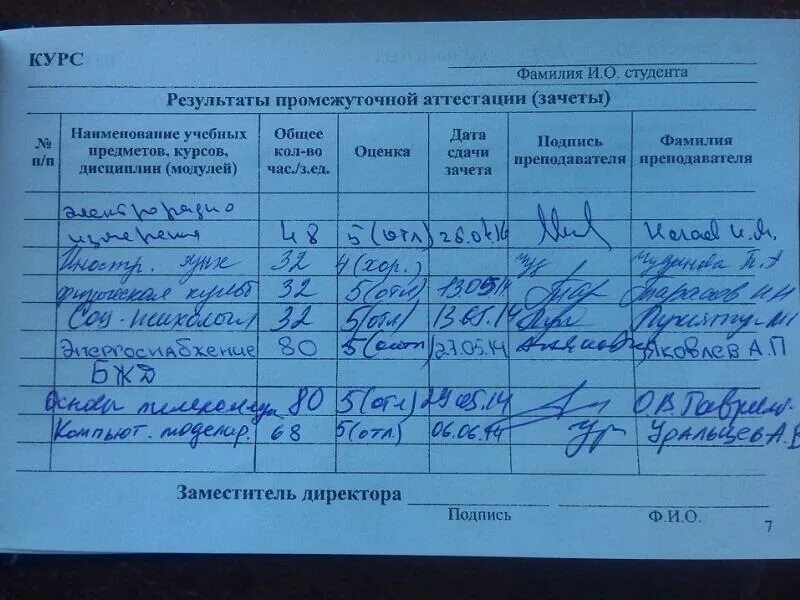 КУРС
Фамилия И.О. студента
Результаты промежуточной аттестации (зачеты)
№ п/п Наименование учебных предметов, курсов, дисциплин (модулей) Общее кол-во час./з.ед. Оценка Дата сдачи зачета Подпись преподавателя Фамилия преподавателя
электрорадио
измерения 48 5(отл) 26.04.14
Иностр. язык 32 4(хор.)
физическая культ 32 5(отл) 13.05.14 Тар Тарасов
Соц-психология 32 5(отл) 13.05.14
Энергоснабжение 80 5(отл) 27.05.14 Яковлев А.П
БЖД
Основы телекоммун 80 5(отл) 29.05.14 О.В.
Компьют. моделир. 68 5(отл.) 06.06.14 Ур Уральцев А.В
Заместитель директора
Подпись Ф.И.О.
7